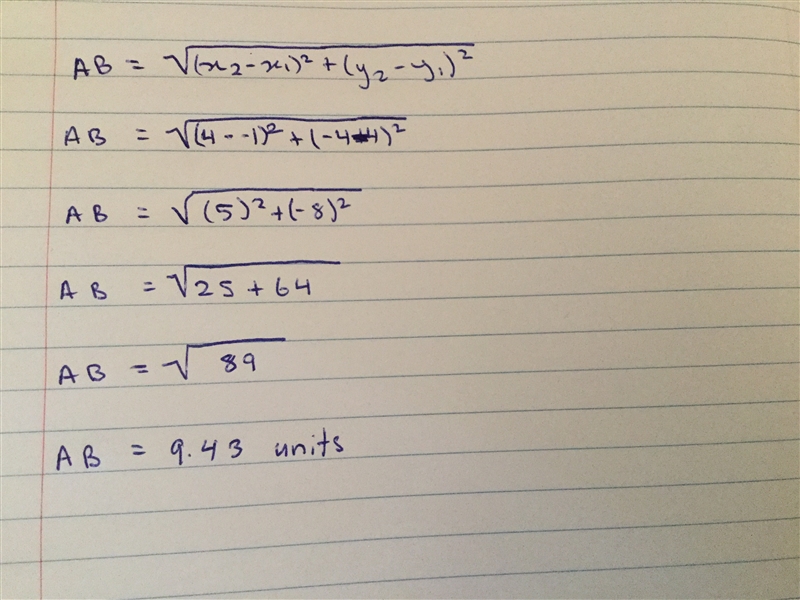 AB = √(x₂-x₁)² + (y₂-y₁)²
AB = √(4--1)² + (-4-4)²
AB = √(5)² + (-8)²
AB = √25 + 64
AB = √89
AB = 9.43 units